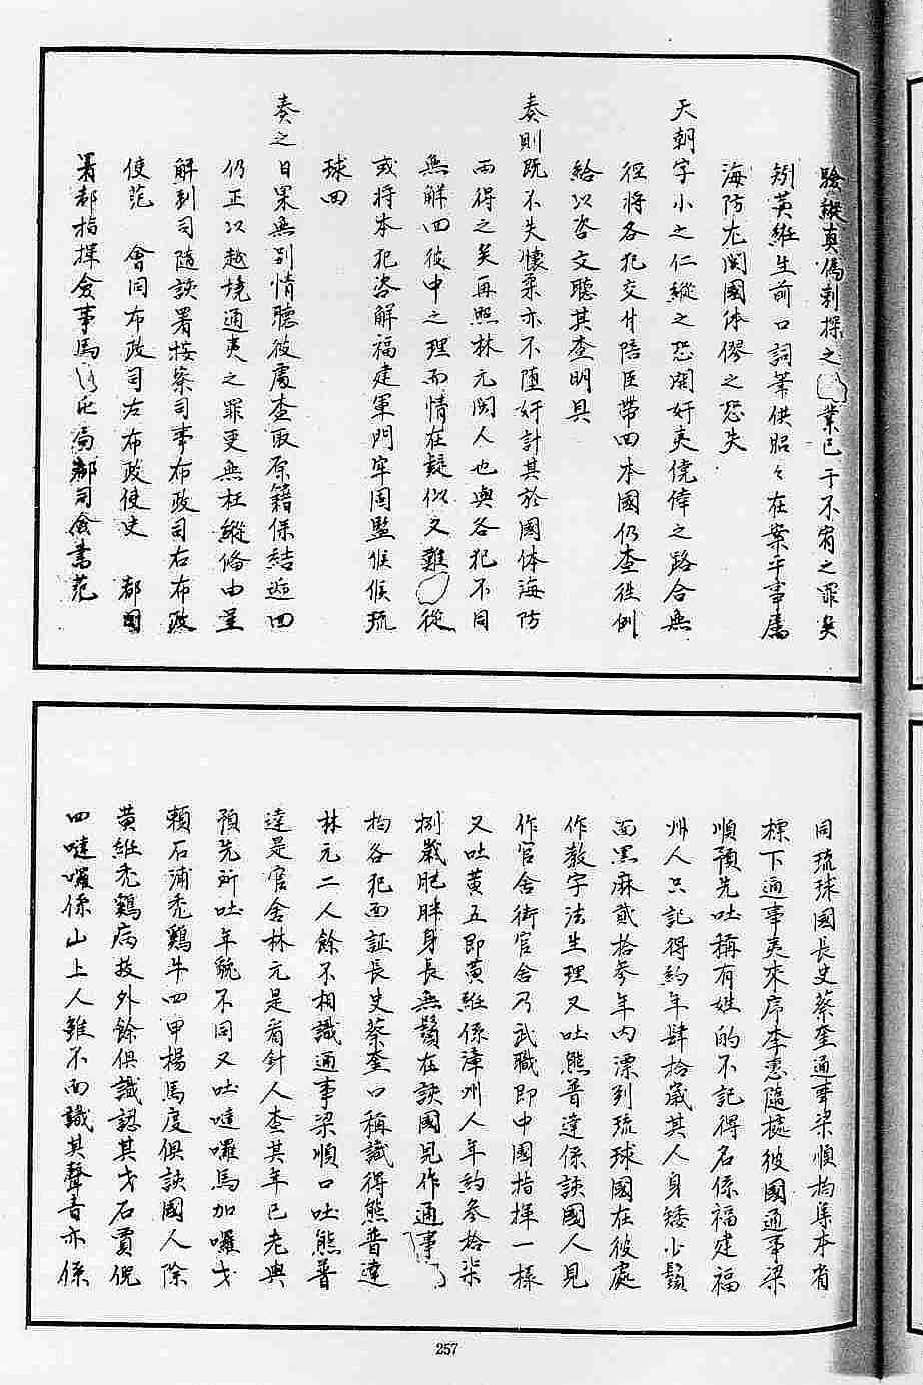 驗縱真偽刺探之業已干不宥之罪矣
矧黃維生前口詞筆供昭々在案乎事屬
海防尤関國体僇之恐失
天朝字小之仁縱之恐開奸夷僥倖之路合無
徑將各犯交付陪臣帶回本國仍查徃例
給以咨文聽其查明具
奏則既不失懷柔亦不墮奸計其於國体海防
両得之矣再照林元閩人也與各犯不同
無解回彼中之理而情在疑似又難從
或將本犯咨解福建軍門牢固監候候琉
球回
奏之日果無别情聽彼處查取原籍保結逓回
仍正以越境通夷之罪更無枉縱俻由呈
解到司隨該署按察司事布政司右布政
使范　會同布政司左布政使史　都司
署都指揮僉事馬局都司僉書范
同琉球國長史蔡奎通事梁順拘集本省
標下通事夷來庶李憲隨據彼國通事梁
順預先吐稱有姓的不記得名係福建福
州人只記得約年肆拾歲其人身矮少鬚
面黑麻貳拾參年内漂到琉球國在彼處
作教字法生理又吐熊普達係該國人見
作官舍衛官舍乃武職即中國指揮一樣
又吐黃五即黃維係漳州人年約參拾柒
捌歲肥胖身長無鬚在該國見作通事
拘各犯面証長史蔡奎口稱識得熊普達
林元二人餘不相識通事梁順口吐熊普
達是官舍林元是看針人查其年已老與
預先所吐年貌不同又吐噠囉馬加囉戈
賴石浦禿鷄牛四甲楊馬度俱該國人除
黃維禿鷄病故外餘俱識認其戈石賈倪
四噠囉係山上人雖不面識其聲音亦係
257